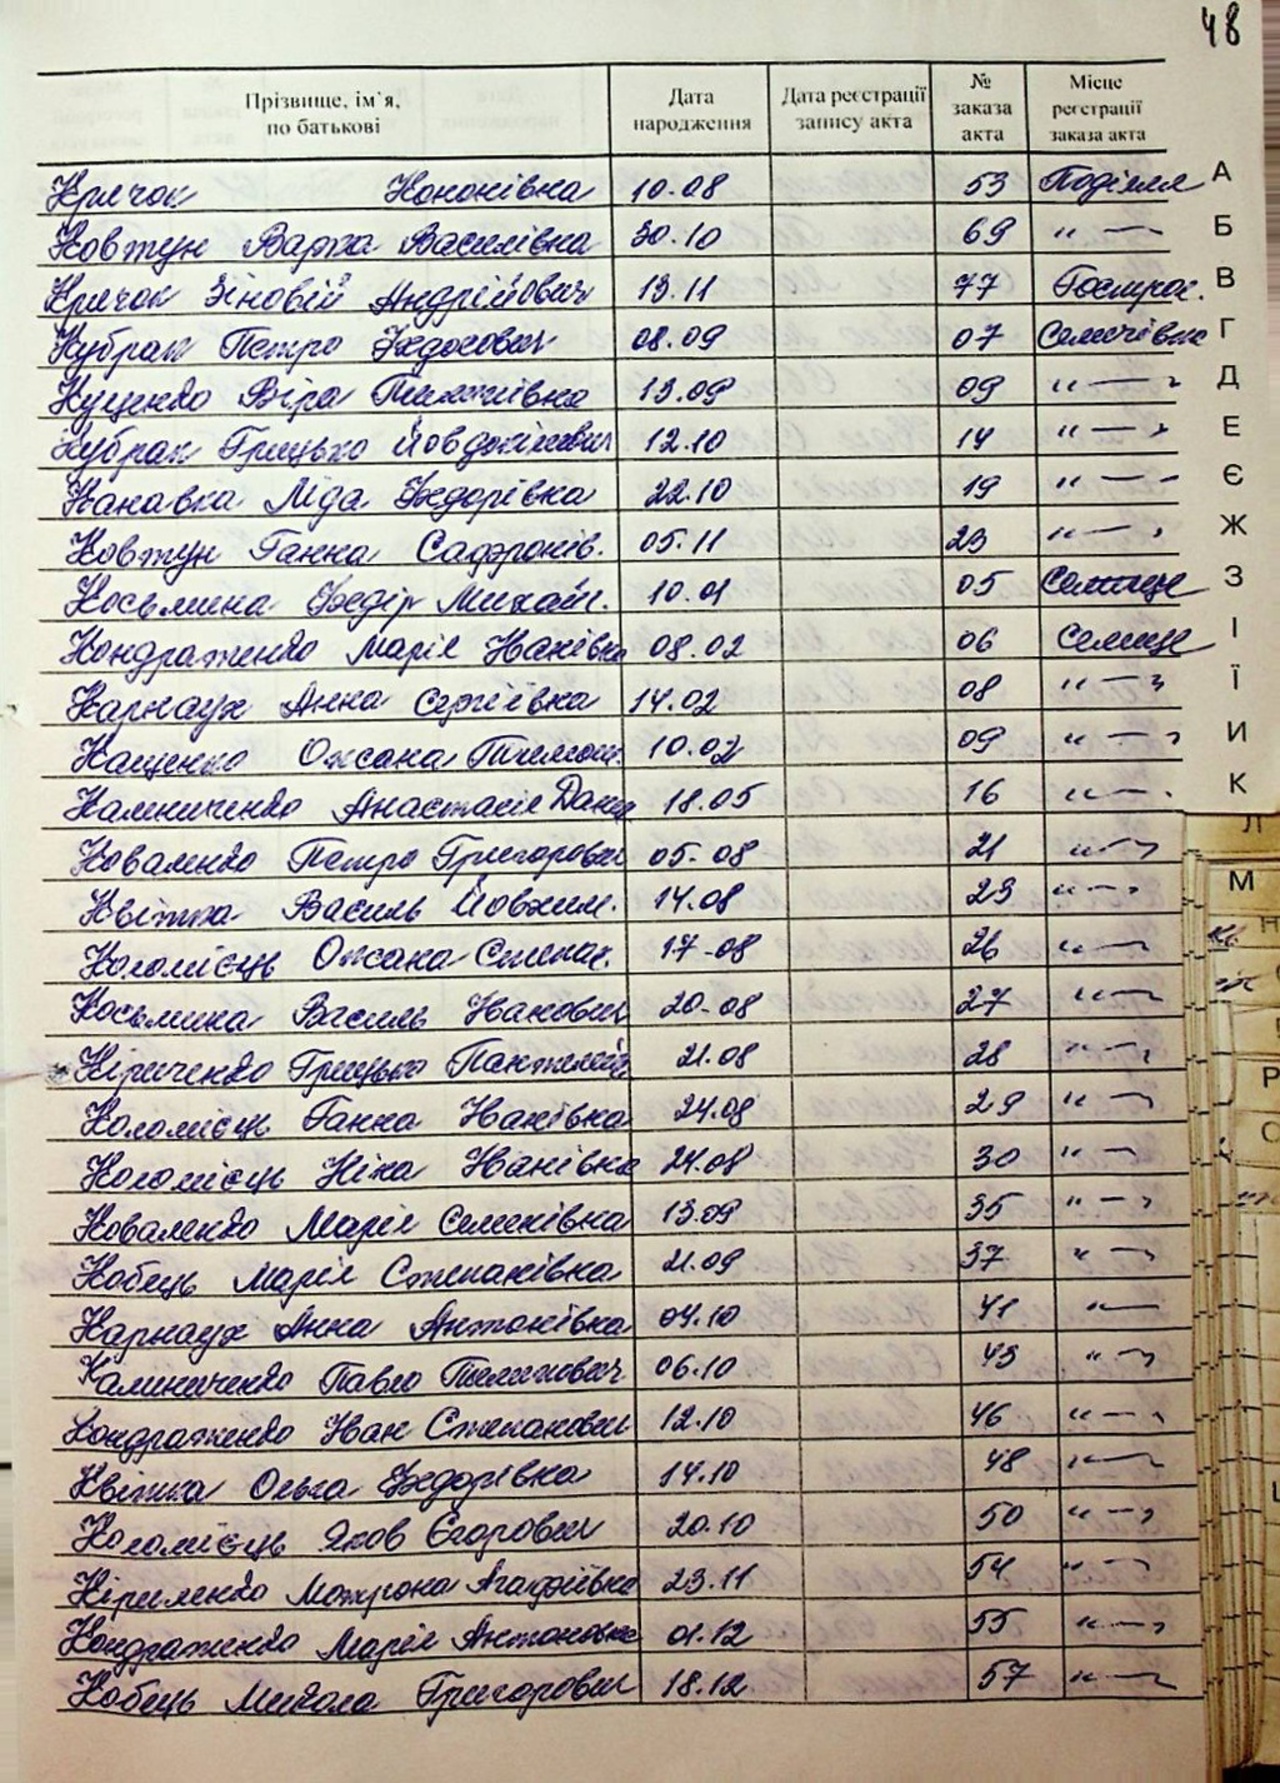 48
Прізвище, ім`я, по батькові Дата народження Дата реєстрації запису акта № заказа акта Місце реєстрації заказа акта
Кричок Кононівна 10.08 53 Поділля А
Ковтун Варка Василівна 30.10 69 " — Б
Кричок Зіновій Андрійович 13.11 77 Гострос. В
Кубрак Петро Федосович 08.09 07 Семенівка Г
Куценко Віра Тимхівна 13.09 09 " — " Д
Кубрак Грицько Йовдокімович 12.10 14 " — " Е
Канавка Ліда Федорівна 22.10 19 " — " Є
Ковтун Ганна Сафронів. 05.11 23 " — " Ж
Косьмина Федір Михайл. 10.01 05 Селище З
Кондратенко Марія Іванівна 08.02 06 Селище І
Карнаух Анна Сергіївна 14.02 08 " — " Ї
Кащенко Оксана Тимош. 10.02 09 " — " И
Калениченко Анастасія Данил 18.05 16 " — . К
Коваленко Петро Григорович 05-08 21 " — " Л
Квітка Василь Йовхим. 14.08 23 " — " М
Коломієць Оксана Степан. 17-08 26 " — " Н
Косьмина Василь Іванович 20-08 27 " — "
Кіриченко Грицько Пантелей 21.08 28 " — "
Р
Коломієць Ганна Іванівна 24.08 29 " — "
С
Коломієць Ніна Іванівна 24.08 30 " — "
Коваленко Марія Семенівна 13.09 35 " — "
Кобець Марія Степанівна 21.09 37 " — "
Карнаух Анна Антонівна 04.10 41 " —
Калениченко Павло Пилипович 06.10 43 " — "
Кондратенко Іван Степанович 12.10 46 " — "
Квітка Ольга Федорівна 14.10 48 " — "
Коломієць Яков Єгорович 20.10 50 " — "
Кіриленко Мотрона Агафіївна 23.11 54 " — "
Кондратенко Марія Антоновна 01.12 55 " — "
Кобець Микола Григорович 18.12 57 " — "